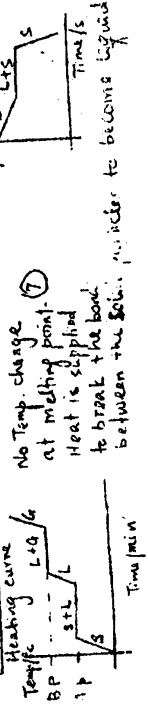 Heating curve
Temp/°c
BP
L+G
G
L
S+L
S
Time/min
No Temp. change
at melting point.
Heat is supplied
to break the bond
between the
in order to become liquid
7
L+S
S
Time/s